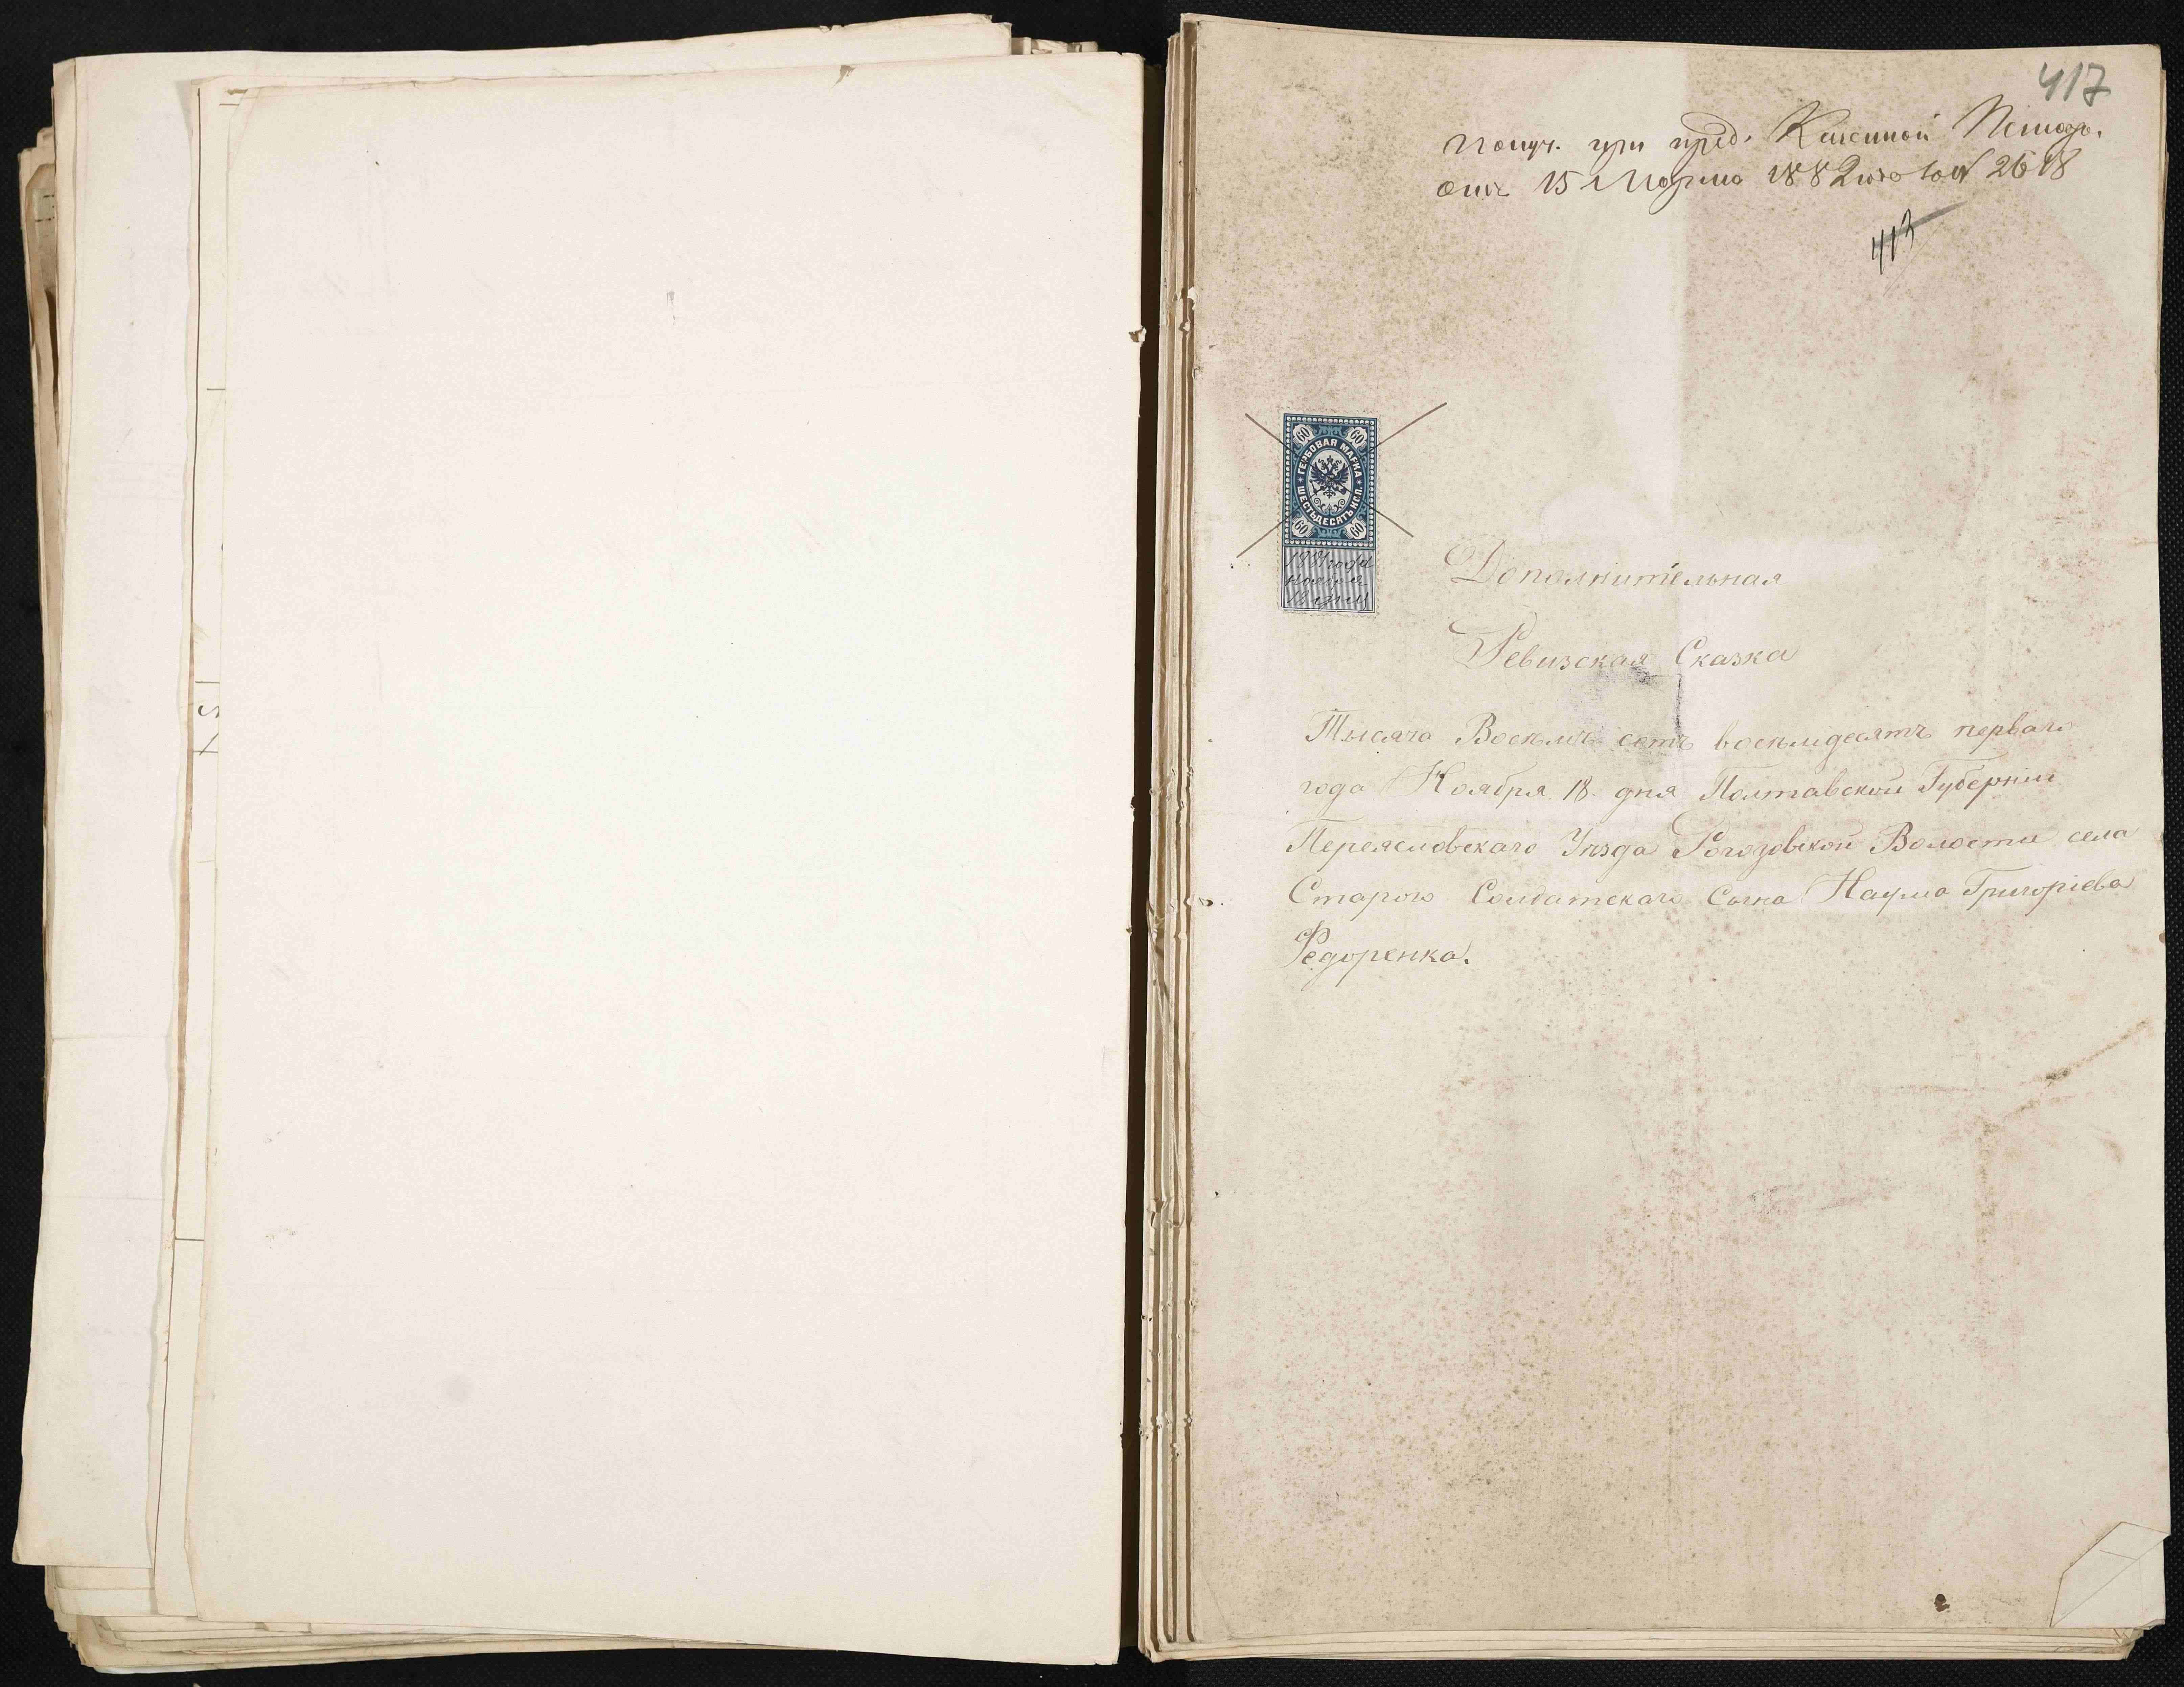 417
Получ. при пред. Казенной Палаты
отъ 15 Марта 1882 года за № 2618
413
60 60
ГЕРБОВАЯ МАРКА
ШЕСТЬДЕСЯТЪ КОП.
60 60
1881 года
ноября
18 дня
Дополнительная
Ревизская Сказка
Тысяча Восемь сотъ восемьдесятъ перваго
года Ноября 18 дня Полтавской Губерніи
Переяславскаго Уѣзда Рогозовской Волости села
Старого Солдатскаго Сына Наума Григоріева
Федоренка.